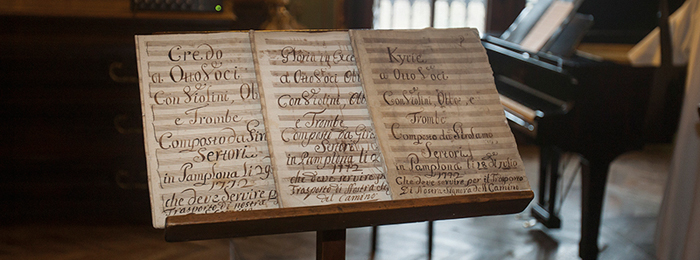 Credo
a Otto Voci
Con Violini, Ob
e Trombe
Composto da Sir
Sertori
in Pamplona li 29
1772
che deve servire
Trasporto di nostra
Gloria in Excel
a Otto Voci
Con Violini, Ob
e Trombe
Composto da
Sertori
in Pamplona
1772
che deve servire p
Trasporto di Nostra
del Camino
Kyrie
a Otto Voci
Con Violini, Oboe, e
Trombe
Composto da Girolamo
Sertori
in Pamplona li 28 Luglio
1772
Che deve servire per il Trasporto
Di Nostra Signora del Camino